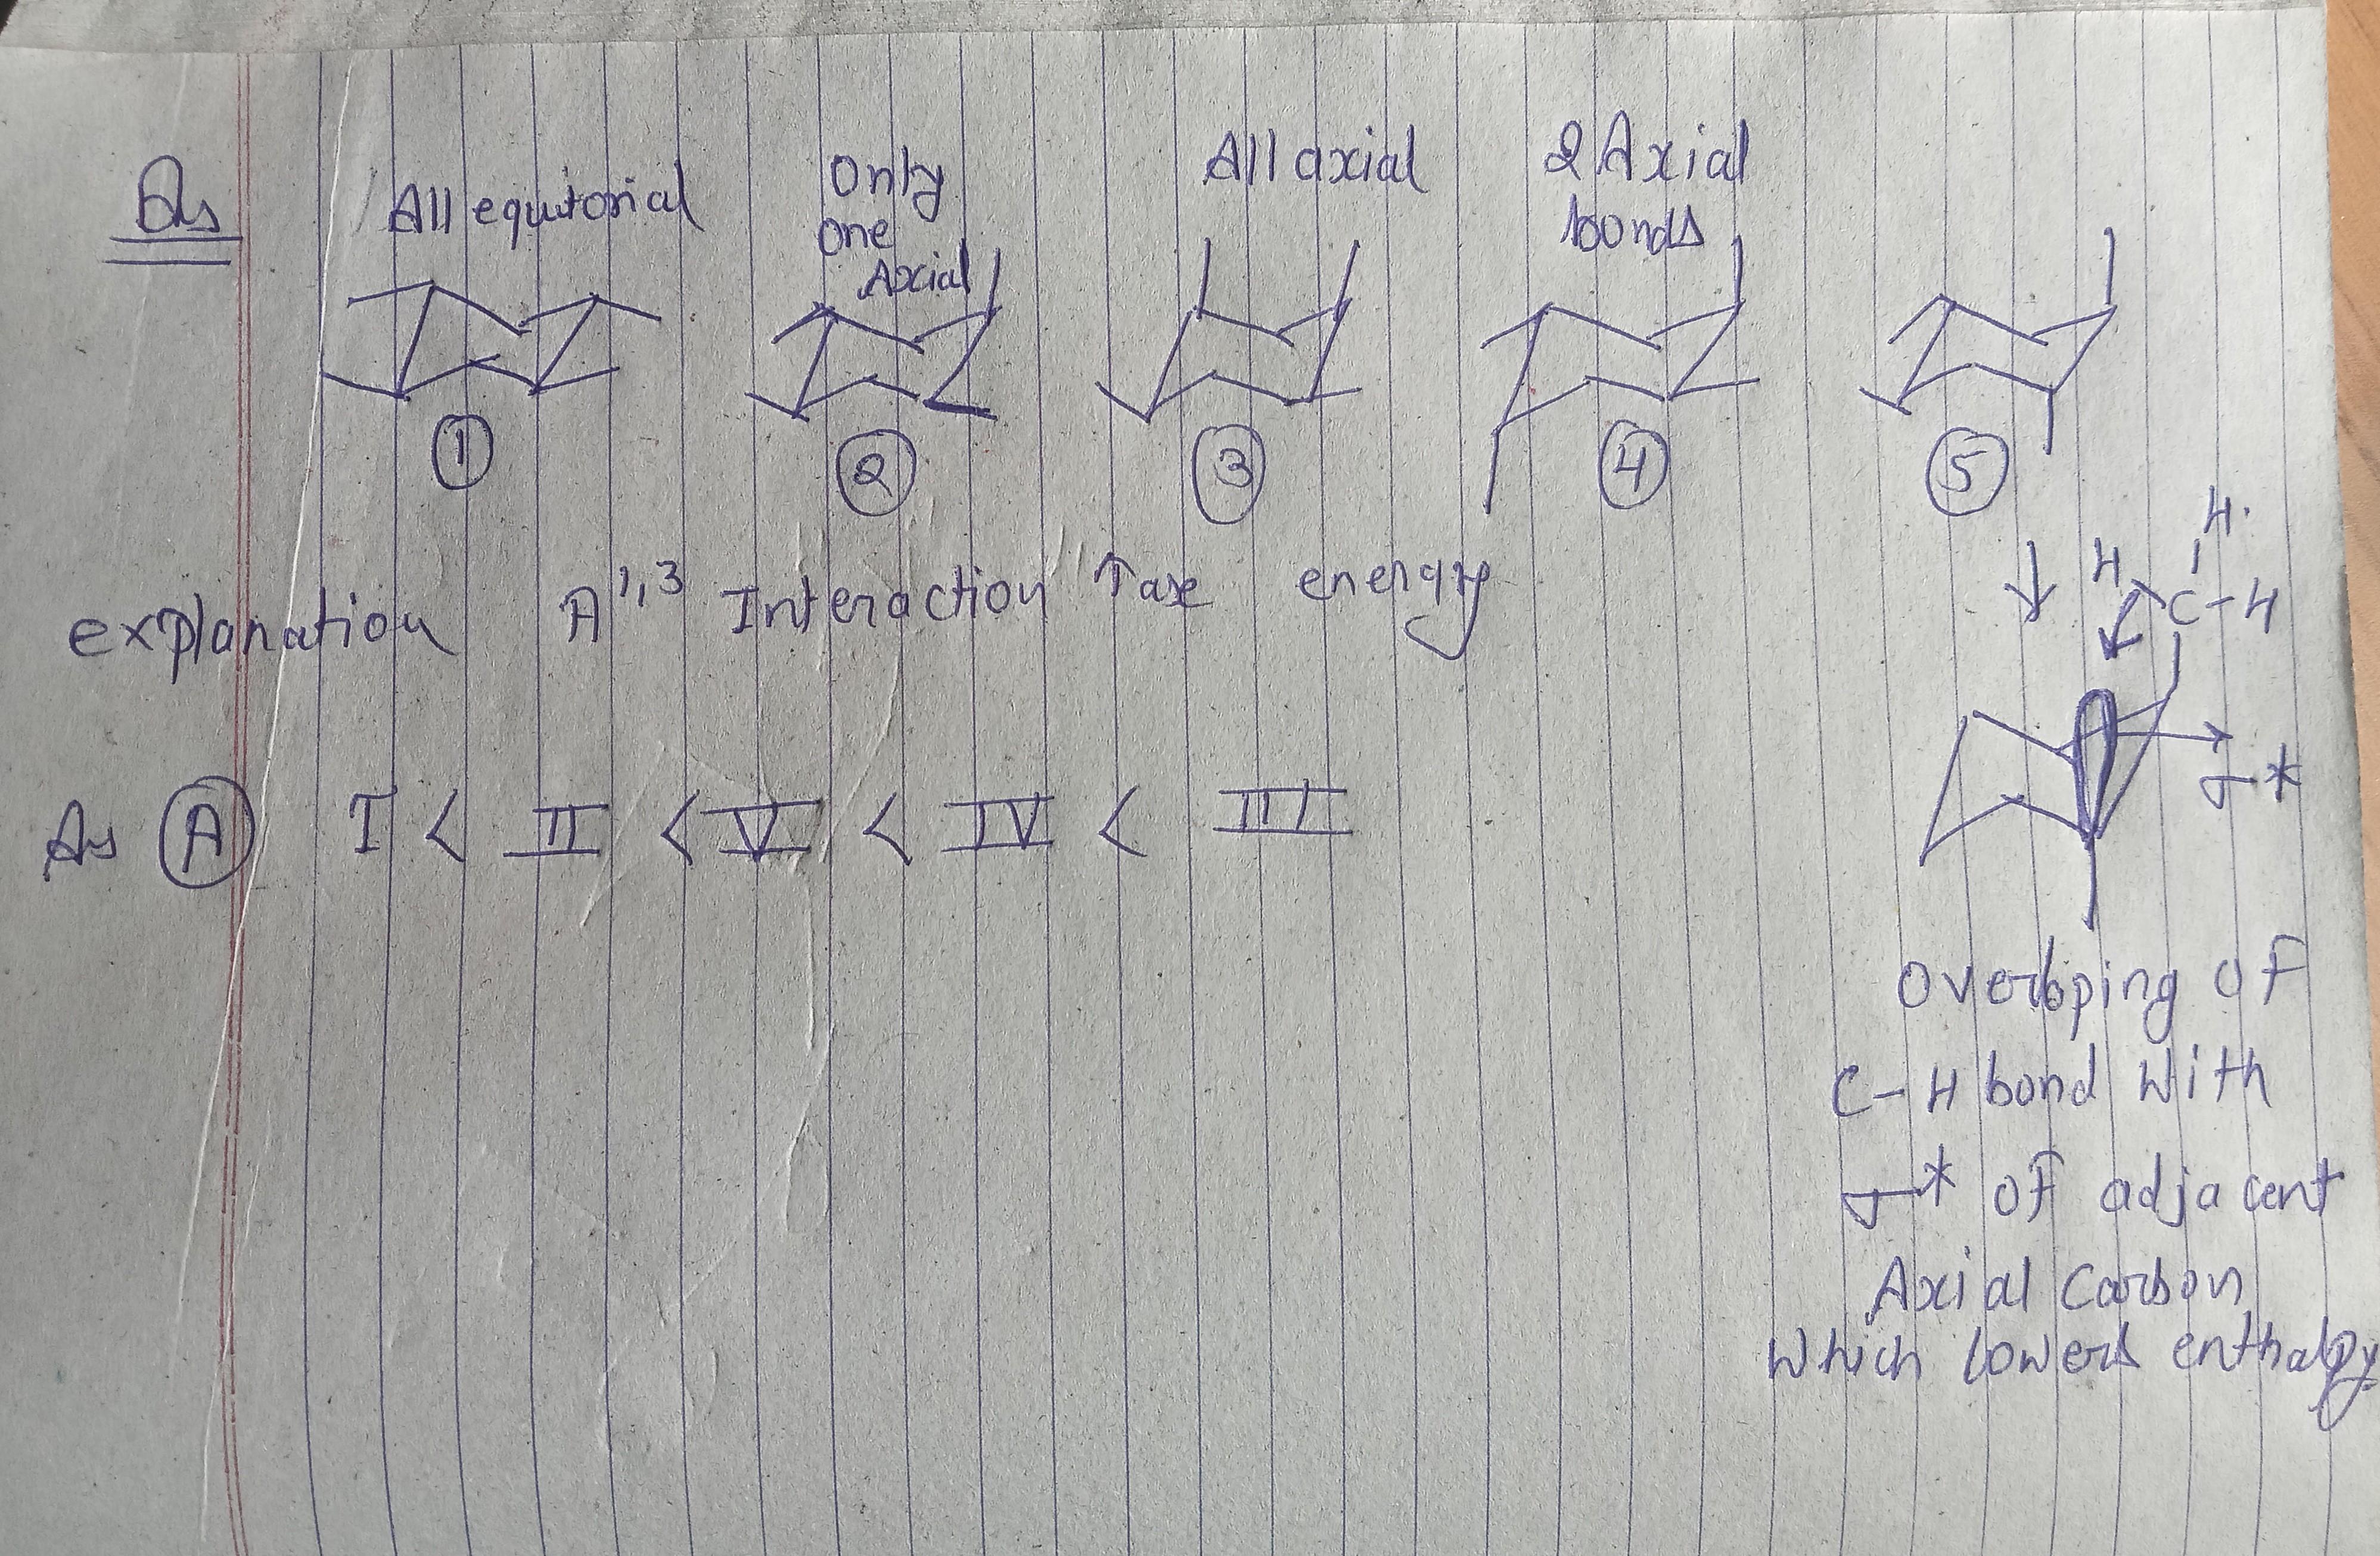 Qs
All equitorial
Only
one
Axial
All axial
2 Axial
bonds
1
2
3
4
5
explanation A1,3 Interaction energy
H
H
C-H
σ*
As A I < II < V < IV < III
Overlaping of
C-H bond with
σ* of adjacent
Axial Carbon
Which lowers enthalpy